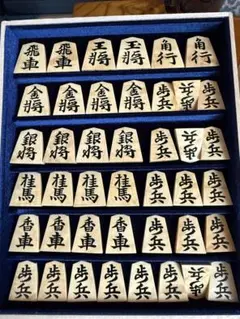 飛車 飛車 王将 玉将 角行 角行
金将 金将 金将 金将 歩兵 歩兵 歩兵
銀将 銀将 銀将 銀将 歩兵 歩兵 歩兵
桂馬 桂馬 桂馬 桂馬 歩兵 歩兵 歩兵
香車 香車 香車 香車 歩兵 歩兵 歩兵
歩兵 歩兵 歩兵 歩兵 歩兵 歩兵 歩兵 歩兵